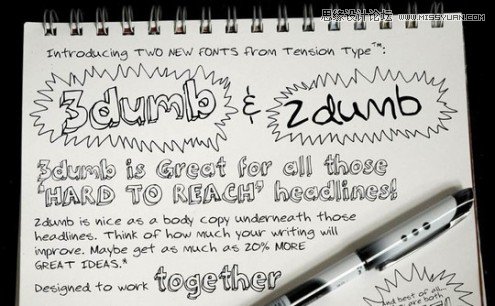 思缘设计论坛 WWW.MISSYUAN.COM
Introducing TWO NEW FONTS from Tension Type™:
3dumb & 2dumb
3dumb is Great for all those
'HARD TO REACH' headlines!
2dumb is nice as a body copy underneath those
headlines. Think of how much your writing will
improve. Maybe get as much as 20% MORE
GREAT IDEAS.*
Designed to work together
And best of all...
are both